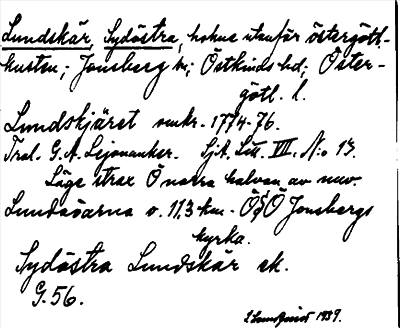 Lundskär, Sydöstra, holme utanför östergötl.
kusten; Jonsberg sn; Östkinds hd; Öster-
götl. l.
Lundskjäret omkr. 1774-76.
Tral. G. A. Lejonanker. Sjk. Lit. VII. No 13.
Läge strax Ö norra halvan av nuv.
Lundaöarna o. 11,3 km. ÖSÖ Jonsbergs
kyrka.
Sydöstra Lundskär ek.
G. 56.
1939.